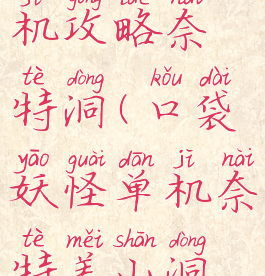 机攻略奈
tè dòng kǒu dài
特洞(口袋
yāo guài dān jī nài
妖怪单机奈
tè měi shān dòng
特美山洞